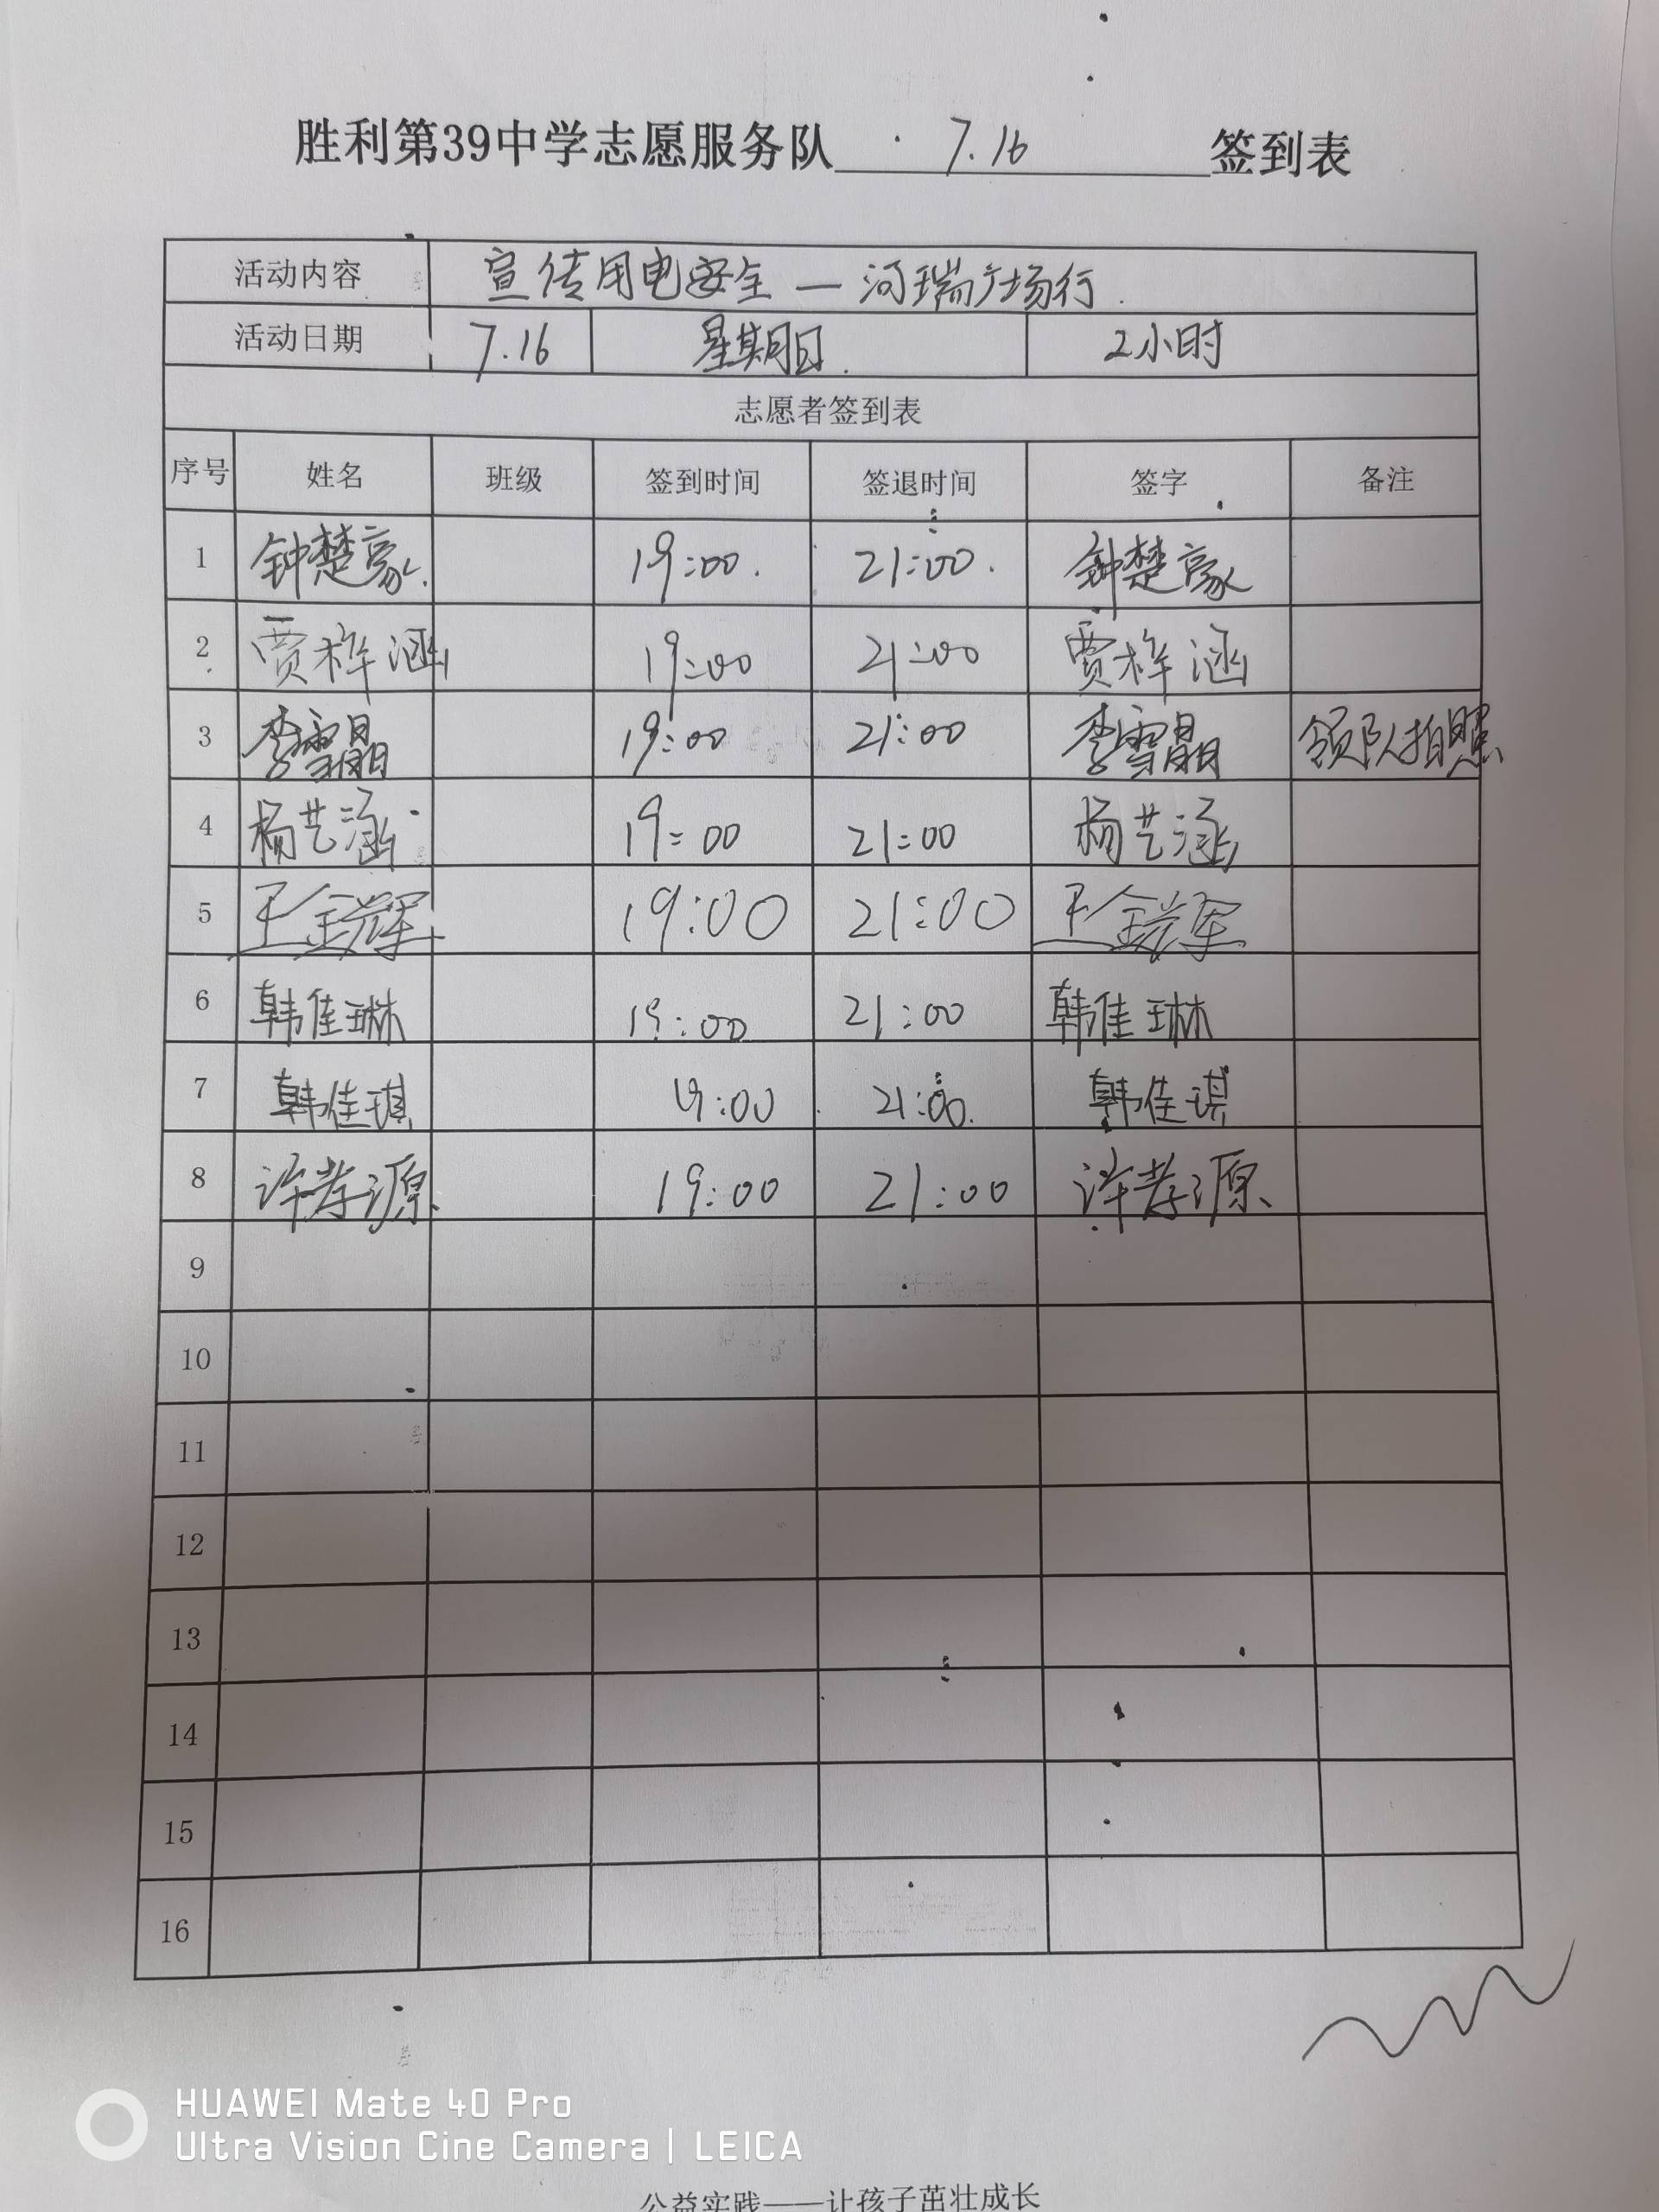 胜利第39中学志愿服务队 7.16 签到表
活动内容 宣传用电安全—河瑞广场行.
活动日期 7.16 星期日. 2小时
志愿者签到表
序号 姓名 班级 签到时间 签退时间 签字 备注
1 钟楚豪. 19:00. 21:00. 钟楚豪
2 贾梓涵 19:00 21:00 贾梓涵
3 李雪晶 19:00 21:00 李雪晶 领队拍照
4 杨艺涵 19:00 21:00 杨艺涵
5 王金辉 19:00 21:00 王金辉
6 韩佳琳 19:00 21:00 韩佳琳
7 韩佳琪 19:00 21:00. 韩佳琪
8 许孝源 19:00 21:00 许孝源
9
10
11
12
13
14
15
16
HUAWEI Mate 40 Pro
Ultra Vision Cine Camera | LEICA
公益实践——让孩子茁壮成长